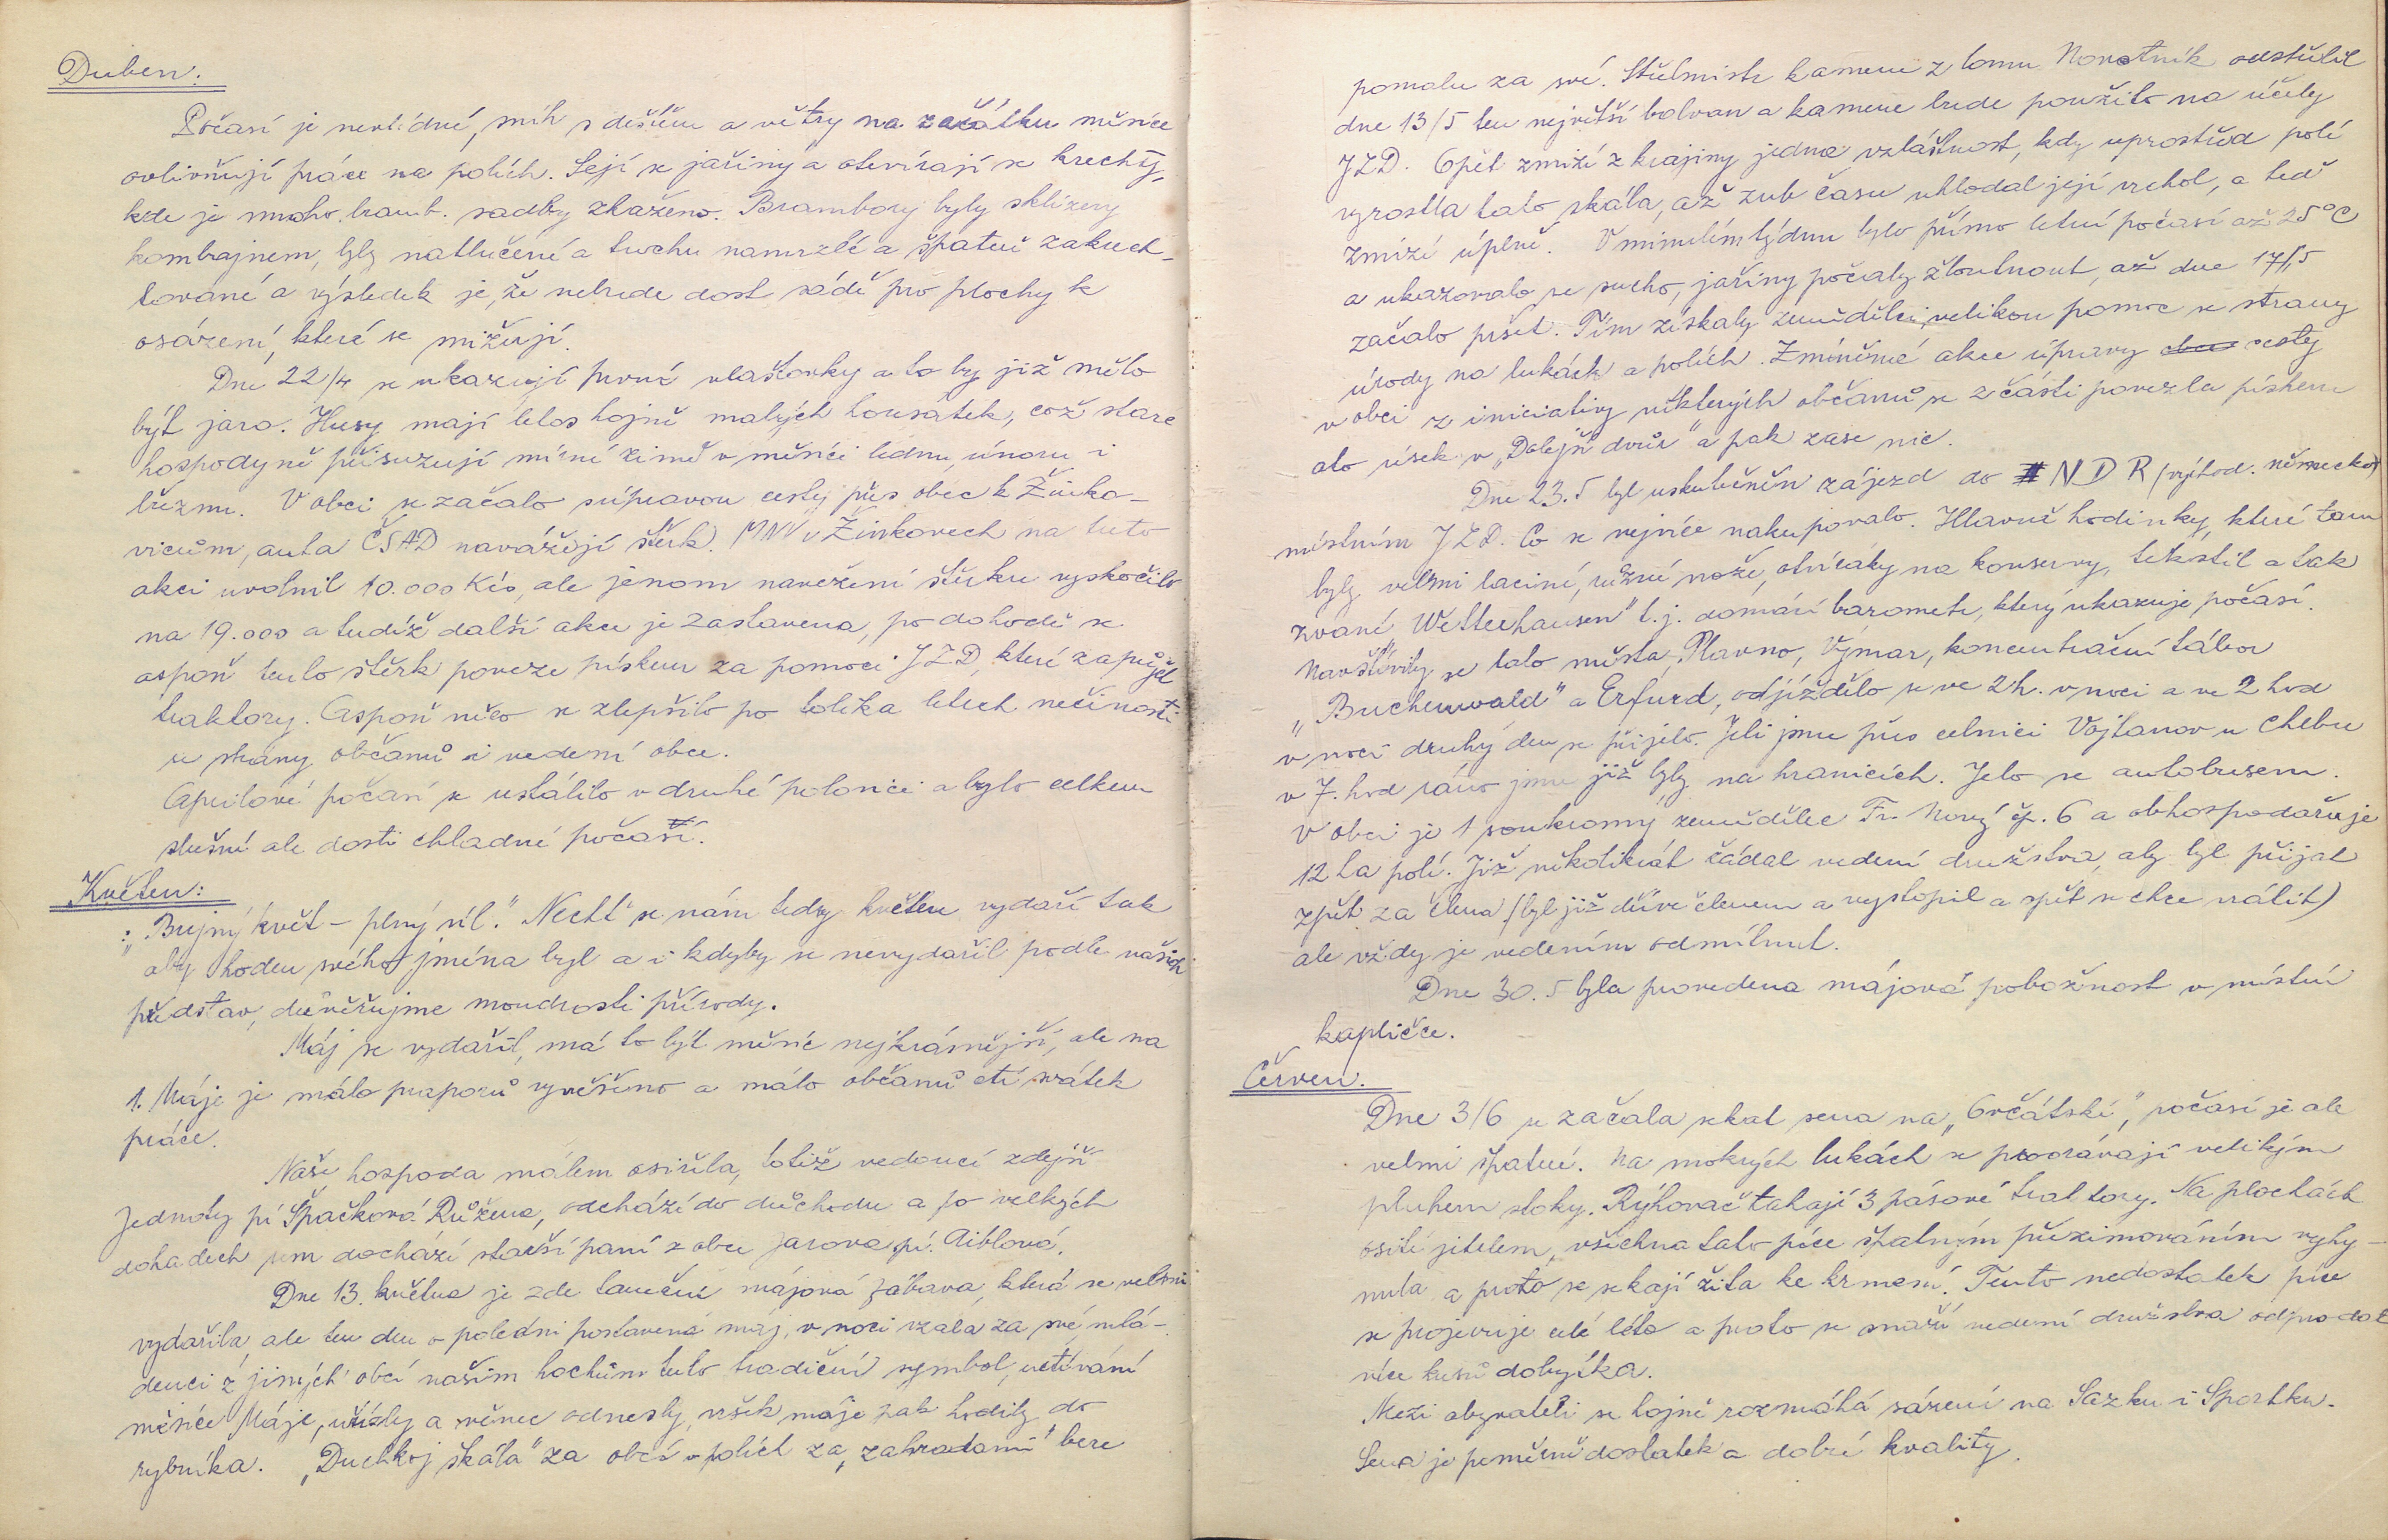 Duben:
Počasí je nevlídné, sníh s deštěm a větry na začátku měsíce
ovlivňují práce na polích. Sejí se jařiny a otevírají se krechty,
kde je mnoho bramb. sadby zkaženo. Brambory byly sklizeny
kombajnem, byly natlučené a trochu namrzlé a špatně zakrech-
tované a výsledek je, že nebude dost sádě pro plochy k
osázení, které se snižují.
Dne 22/4 se ukazují první vlaštovky a to by již mělo
být jaro. Husy mají letos hojně malých housátek, což staré
hospodyně přisuzují mírné zimě v měsíci lednu, únoru i
březnu. V obci se začalo s úpravou cesty přes obec k Žinko-
vicům, auta ČSAD navážejí štěrk. MNV v Žinkovech na tuto
akci uvolnil 10.000 Kčs, ale jenom navežení štěrku vyskočilo
na 19.000 a tudíž další akce je zastavena, po dohodě se
aspoň tento štěrk poveze pískem za pomoci JZD, které zapůjčí
traktory. Aspoň něco se zlepšilo po tolika letech nečinosti
se strany občanů i vedení obce.
Aprilové počasí se ustálilo v druhé polovici a bylo celkem
slušné ale dosti chladné počasí.
Květen:
"Bujný květ – plný úl." Nechť se nám tedy květen vydaří tak
aby hoden svého jména byl a i kdyby se nevydařil podle našich
představ, důvěřujme moudrosti přírody.
Máj se vydařil, má to být měsíc nejkrásnější, ale na
1. Máje je málo praporů vyvěšeno a málo občanů ctí svátek
práce.
Naše hospoda málem osiřela, totiž vedoucí zdejší
Jednoty pí Špačková Růžena, odchází do důchodu a po velkých
dohadech sem dochází starší paní z obce Jarova pí. Aiblová.
Dne 13. května je zde taneční májová zábava, která se velmi
vydařila, ale ten den o poledni postavená máj, v noci vzala za své, mlá-
denci z jiných obcí našim hochům tuto tradiční symbol, uctívání
měsíce Máje, uřízly a věnec odnesly, vršek máje pak hodily do
rybníka. "Duchkoj skála" za obcí v polích za "zahradami" bere
pomalu za své. Střelmistr kamene z lomu Novotník odstřelil
dne 13/5 ten největší balvan a kamene bude použito na účely
JZD. Opět zmizí z krajiny jedna zvláštnost, kdy uprostřed polí
vyrostla tato skála, až zub času uhlodal její vrchol, a teď
zmizí úplně. V minulém týdnu bylo přímo letní počasí až 25°C
a ukazovalo se sucho, jařiny počaly žloutnout, až dne 17/5
začalo pršet. Tím získaly zemědělci velikou pomoc se strany
úrody na lukách a polích. Zmíněné akce úpravy cesty
v obci z iniciativy některých občanů se z části povezla pískem
ato úsek v "Dolejší dvůr" a pak zase nic.
Dne 23.5 byl uskutečněn zájezd do NDR (východ. německo)
místním JZD. Co se nejvíce nakupovalo. Hlavně hodinky, které tam
byly velmi laciné, různé nože, otvíráky na konservy, tekstil a tak
zvané "Wetterhausen" t.j. domácí barometr, který ukazuje počasí.
Navštívily se tato města, Plavno, Výmar, koncentrační tábor
"Buchenwald" a Erfurd, odjíždělo se ve 2h. v noci a ve 2 hod
v noci druhý den se přijelo. Jeli jsme přes celnici Vojtanov u Chebu
v 7. hod ráno jsme již byly na hranicích. Jelo se autobusem.
V obci je 1 soukromý zemědělec Fr. Nový čp. 6 a obhospodařuje
12 ha polí. Již několikrát žádal vedení družstva, aby byl přijat
zpět za člena (byl již dříve členem a vystopil a spět se chce vrátit)
ale vždy je vedením odmítnut.
Dne 30.5 byla provedena májová pobožnost v místní
kapličce.
Červen.
Dne 3/6 se začala sekat sena na "Ovčátské", počasí je ale
velmi špatné. Na mokrých lukách se proorávají velikým
pluhem stoky. Rýhovač tahají 3 pásové traktory. Na plochách
osetí jetelem, všechna tato píce špatným přezimováním vyhy-
nula a proto se sekají žita ke krmení. Tento nedostatek píce
se projevuje celé léto a proto se snaží vedení družstva odprodat
více kusů dobytka.
Mezi obyvateli se hojně rozmáhá sázení na Sazku i Sportku.
Sena je poměrně dostatek a dobré kvality.